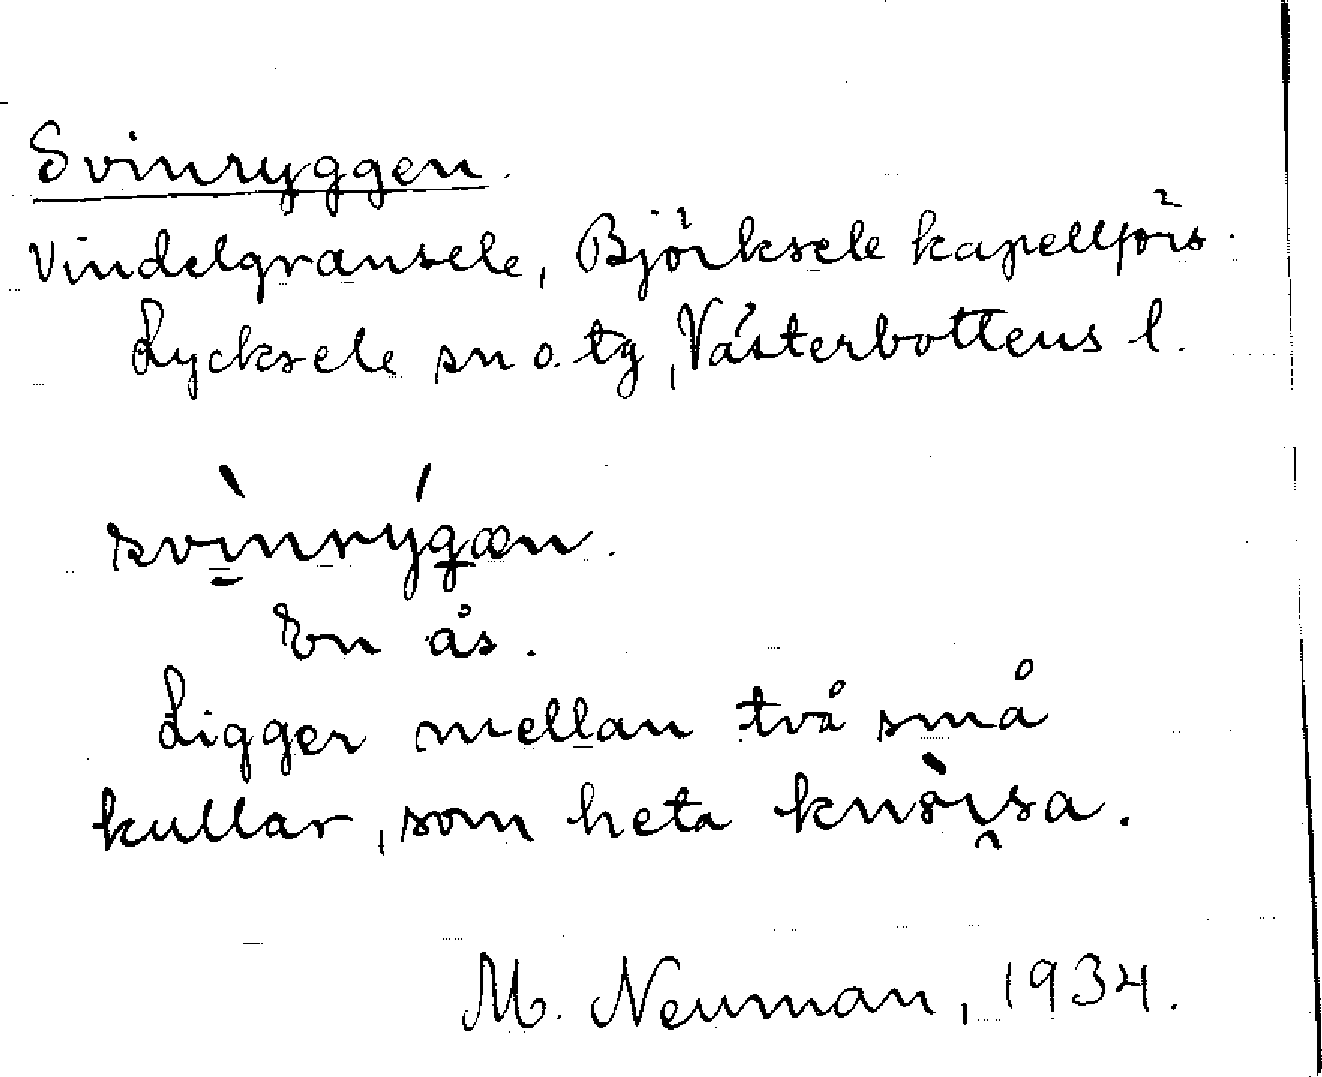 Svinryggen.
Vindelgransele, Björksele kapellförs.
Lycksele sn o. tg, Västerbottens l.
svì̱nrýgæn.
En ås.
Ligger mellan två små
kullar, som heta knö̀i̯sa.
M. Neuman, 1934.